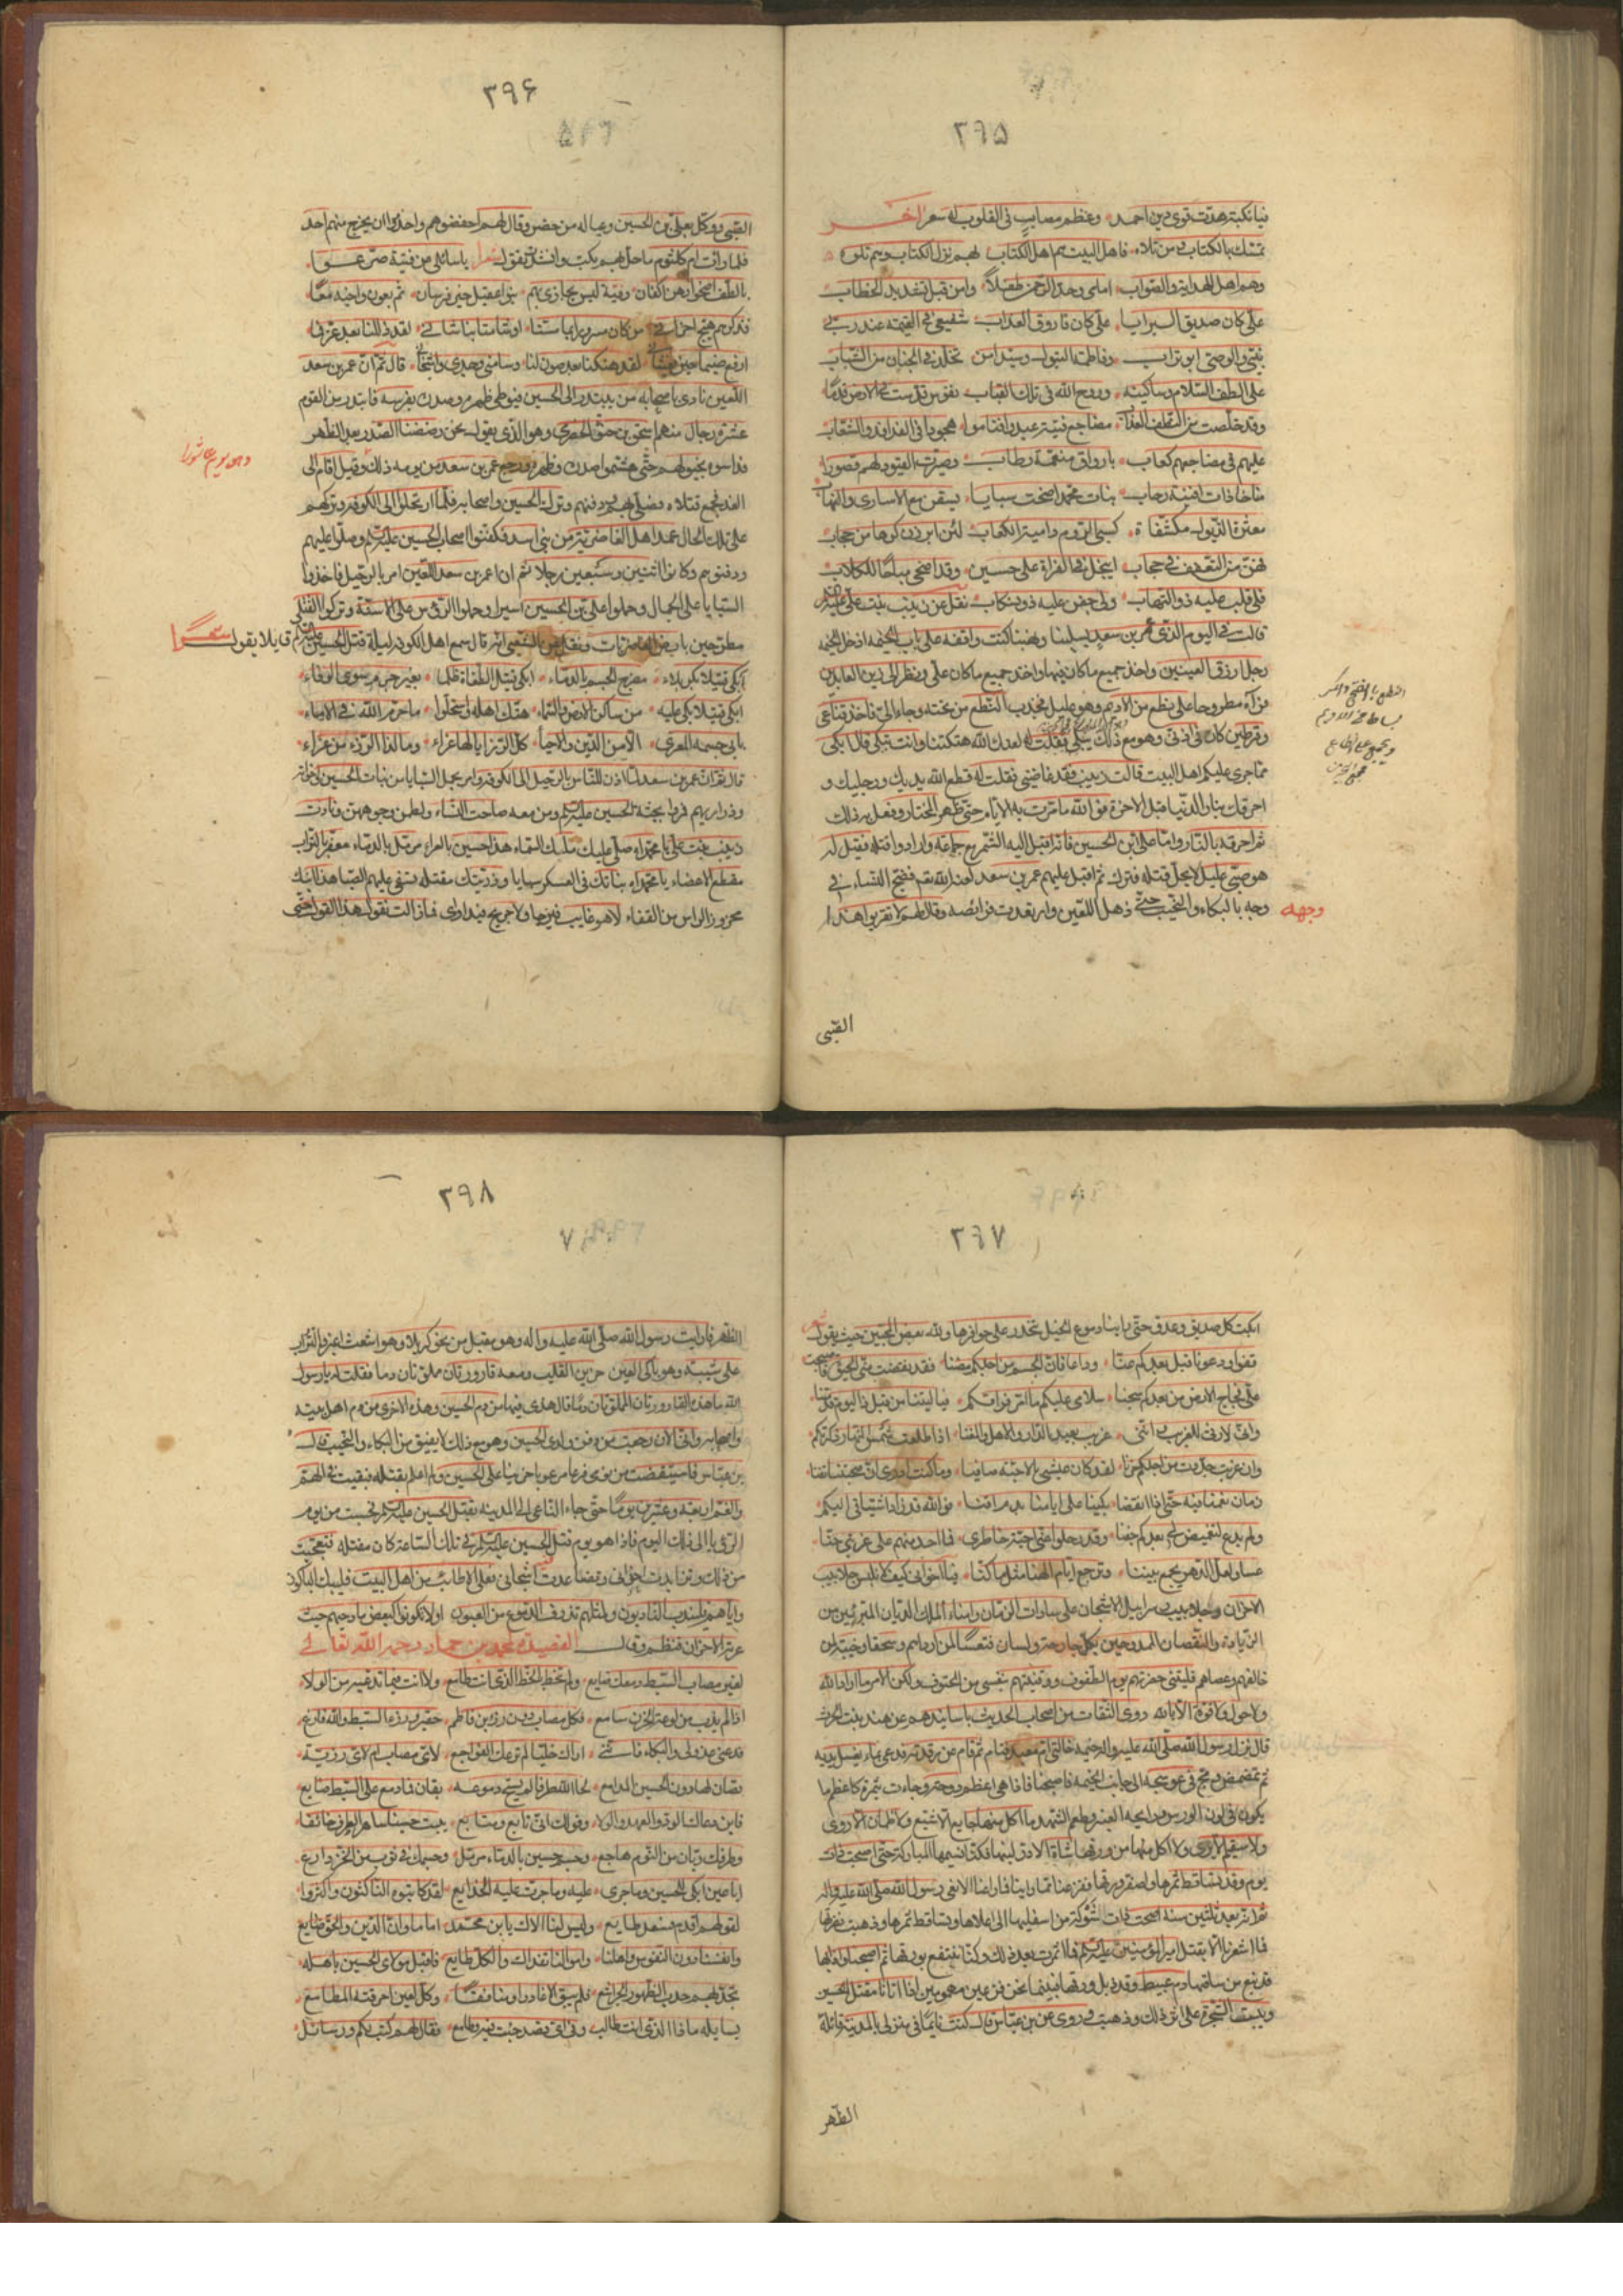 ٣٩٥
فيا نكبة هدت قوى دين احمد وعظم مصاب في القلوب له سعر اخر
تمسك بالكتاب ومن تلاه فاهل البيت هم اهل الكتاب لهم نزل الكتاب وهم تلوه
وهم اهل الهداية والصواب امامي وحد الرحمن طفلا وامن قبل تشديد الخطاب
علي كان صديق البرايا علي كان فاروق العذاب شفيعي في القيمة عند ربي
نبيي والوصي ابو تراب وفاطمة البتول وسيدا من تخلد في الجنان من الشباب
على الطف السلام وساكنيه وروح الله في تلك القباب نفوس قدست في الارض قدما
وقد خلصت من النطف العذاب مضاجع فتية عبدوا فناموا هجودا في الفدافد والشعاب
عليهم في مضاجعهم كعاب باروق منعمة رطاب وصيرت القبور لهم قصورا
مناخا ذات افنية رحاب بنات محمد اضحت سبايا يسقن مع الاسارى والنهاب
معثرة الذيول مكشفات كسبي الروم دامية الكعاب لئن ابرزن كرها من حجاب
فهن من التعفف في حجاب ايبخل في الفرات على حسين وقد اضحى مباحا للكلاب
فلي قلب عليه ذو التهاب ولي جفن عليه ذو انسكاب نقل عن زينب بنت علي
قالت في اليوم الذي امر بن سعد بسلبنا ونهبنا كنت واقفة على باب الخيمة اذ دخل الخيمة
رجل ازرق العينين واخذ جميع ما كان فيها واخذ جميع ما كان علي ونظر الى زين العابدين
فرآه مطروحا على نطع من الاديم وهو عليل فجذب النطع من تحته وجاء الي فاخذ قناعي
وقرطين كان في اذني وهو مع ذلك يبكي فقلت له لعنك الله هتكتنا وانت تبكي قال ابكي
مما جرى عليكم اهل البيت قالت زينب فقد غاضني فقلت له قطع الله يديك ورجليك و
احرقك بنار الدنيا قبل الاخرة فوالله ما مرت به الايام حتى ظهر المختار وفعل به ذلك
ثم احرقه بالنار واما علي ابن الحسين فانه اقبل اليه الشمر مع جماعة وارادوا قتله فقيل له
هو صبي عليل لا يحل قتله فتركه ثم اقبل عليهم عمر بن سعد لعنه الله فضج النساء في
وجه بالبكاء والنحيب حتى ذهل اللعين وارتعدت فرائصه وقال لهم لا تقربوا هذا
النطع بالفتح والكسر
بساط من الاديم
وجهه
القبى
٣٩٦
القبي ووكل بعلي بن الحسين وعياله من حضر وقال لهم احفضوهم واحذروا ان يخرج منهم احد
فلما رأت ام كلثوم ما حل بهم بكت وانشأت تقول شعرا يا سائلي عن فتية صرعوا
بالطف اضحوا رهن اكفان وفتية ليس يجارى بهم بنو عقيل خير فرسان ثم بعون واخيه معا
فذكرهم هيج احزاني من كان مسرورا بما مسنا او شامتا بنا شاني لقد ذللنا بعد عز فما
ارفع ضيما حين يغشاني لقد هتكنا بعد صون لنا وسامني وجدي واشجاني قال ثم ان عمر بن سعد
اللعين نادى باصحابه من يبتدر الى الحسين فيوطئ ظهره وصدره بفرسه فابتدر من القوم
عشرة رجال منهم اسحق بن حنق الحضرمي وهو الذي يقول نحن رضضنا الصدر بعد الظهر
فداسوه بخيولهم حتى هشموا صدره وظهره ورجع عمر بن سعد من يومه ذلك وقيل اقام الى
الغد فجمع قتلاه فصلى بهم ودفنهم وترك الحسين واصحابه فلما ارتحلوا الى الكوفة وتركهم
على تلك الحال عمد اهل الغاضرية من بني اسد فكفنوا اصحاب الحسين عليه السلم وصلوا عليهم
ودفنوهم وكانوا اثنين وسبعين رجلا ثم ان عمر بن سعد اللعين امر بالرحيل فاخذوا
السبايا على الجمال وحملوا علي بن الحسين اسيرا وحملوا الرؤس على الاسنة وتركوا القتلى
مطرحين بارض الغاضريات ونقل عن الشعبي انه قال سمع اهل الكوفة ليلة قتل الحسين عليه السلم قايلا يقول شعرا
ابكي قتيلا بكربلاء مضرج الجسم بالدماء ابكي قتيل الطغاة ظلما بغير جرم سوى الوفاء
ابكي قتيلا بكى عليه من ساكن الارض والسماء هتك اهله واستحلوا ما حرم الله في الاماء
يا بي جسمه المعرى الا من الدين والحياء كل الرزايا لها عزاء وما لذا الرزء من عزاء
قال ثم ان عمر بن سعد لما اذن للناس بالرحيل الى الكوفة وامر بحمل السبايا من بنات الحسين واخواته
وذراريهم فمروا بجثة الحسين عليه السلم ومن معه صاحت النساء ولطمن وجوههن ونادت
زينب بنت علي يا محمداه صلى عليك مليك السماء هذا حسين بالعراء مرمل بالدماء معفر بالتراب
مقطع الاعضاء يا محمداه بناتك في العسكر سبايا وذريتك مقتله تسفي عليهم الصبا هذا ابنك
محزوز الراس من القفاء لا هو غايب فيرجا ولا جريح فيداوى فما زالت تقول هذا القول حتى
وهو يوم عاشورا
٣٩٧
ابكت كل صديق وعدو حتى راينا دموع الخيل تتحدر على حوافرها ولله بعض المحبين حيث يقول شعر
قفوا ودعونا قبل بعدكم عنا وداعا فان الجسم من اجلكم مضنا فقد نقضت مني الحيوة واصبحت
علي فجاج الارض من بعدكم سجنا سلامي عليكم ما امر فراقكم فيا ليتنا من قبل ذا اليوم قد متنا
واني لارثي للغريب وانني غريب بعيد الدار والاهل والمغنا اذا طلعت شمس النهار ذكرتكم
وان غربت جددت من اجلكم حزنا لقد كان عيشي بالاحبة صافيا وما كنت ادري ان صحبتنا تفنا
زمان نعمنا فيه حتى اذا انقضا بكينا على ايامنا بدم اقنا فوالله قد زاد اشتياقي اليكم
ولم يدع التغميض لي بعدكم جفنا وقد رحلوا عني احبة خاطري فما احد منهم على غربتي حنا
عسا ولعل الدهر يجمع بيننا وترجع ايام الهنا مثل ما كنا فيا اخواني كيف لا نلبس جلابيب
الاحزان وجلابيب سرابيل الاشجان على سادات الزمان وامناء الملك الديان المبرئين من
الزيادة والنقصان الممدوحين بكل جارحة ولسان فتعسا لمن اردا هم وسحقا وخيبة لمن
خالفهم وعصاهم فليتني حضرتهم يوم الطفوف ووقيتهم بنفسي من الحتوف ولكن الامر ما اراد الله
ولا حول ولا قوة الا بالله روي الثقات من اصحاب الحديث باسانيدهم عن هند بنت الحرث
قال نزل رسول الله صلى الله عليه وآله خيمة خالتي ام معبد فنام ثم قام من رقدته فدعى بماء يغسل يديه
ثم تمضمض ومج في عوسجة الى جانب الخيمة فاصبحنا فاذا هي اعظم دوحة وجاءت بثمرة كاعظم ما
يكون في لون الورس ورايحة العنبر وطعم الشهد ما اكل منها جايع الا شبع ولا ظمان الا روى
ولا سقيم الا برئ ولا اكل منها من ورقها شاة الا در لبنها فكنا نسيمها المباركة حتى اصبحت ذات
يوم وقد تساقط ثمرها واصفر ورقها ففزعنا لما راينا فما راعنا الا نعي رسول الله صلى الله عليه وآله
ثم انه بعد ثلثين سنة اصبحت ذات شوكة من اسفلها الى اعلاها وتساقط ثمرها وذهبت نضرتها
فما شعرنا الا بقتل امير المؤمنين عليه السلم فما اثمرت بعد ذلك وكنا ننتفع بورقها ثم اصبحنا واذا بها
قد نبع من ساقها دم عبيط وقد ذبل ورقها فبينما نحن فزعين مهمومين اذ اتانا مقتل الحسين
ويبست الشجرة على اثر ذلك وذهبت وروي عن بن عباس قال كنت نايما في منزلي بالمدينة قائلة
الظهر
٣٩٨
الظهر فرايت رسول الله صلى الله عليه واله وهو مقبل من نحو كربلا وهو اشعث اغبر والتراب
على شيبته وهو باكي العين حزين القلب ومعه قارورتان مملوتان دما فقلت له يا رسول
الله ما هذه القارورتان المملوتان دما قال هذه فيها من دم الحسين وهذه الاخرى من دم اهل بيته
واصحابه واني الان رجعت من دفن ولدي الحسين وهو مع ذلك لا يفيق من البكاء والنحيب قال
بن عباس فاستيقضت من نومي فزعا مرعوبا حزينا على الحسين ولم اعلم بقتله فبقيت في الهم
والغم اربعة وعشرين يوما حتى جاء الناعي الى المدينة بقتل الحسين عليه السلم فحسبت من يوم
الرؤيا الى ذلك اليوم فاذا هو يوم قتل الحسين عليه السلم وفي تلك الساعة كان مقتله فتعجبت
من ذلك وتزايدت احزاني وتضاعدت اشجاني فعلى الاطائب من اهل البيت فليبك الباكون
واياهم فليندب النادبون ولمثلهم تذرف الدموع من العيون او لا تكونون كبعض مادحيهم حيث
عرته الاحزان فنظم وقال القصيدة لمحمد بن حماد رحمه الله تعالى
لغير مصاب السبط دمعك ضايع ولم تحظ بالحظ الذي انت طامع ولا انت فيما تدعيه من الولاء
اذا لم يذب من لوعة الحزن سامع فكل مصاب دون رزء بن فاطم حقير ورزء السبط والله فارع
فدعني عذولي والبكاء فانني اراك خليا لم ترعك الفواجع لاي مصاب ام لاي رزية
تصان لها دون الحسين المدامع لحا الله طرفا لم يسح دموعه بقان فدمع على السبط ضايع
فاين دعاك الود والعهد والولا وقولك اني تابع ومتابع يبيت حسينا ساهر الطرف خائفا
وطرفك ريان من النوم هاجع وجسم حسين بالدماء مرمل وجسمك في ثوب من الخز دارع
ايا عين ابكي للحسين وما جرى عليه وما جرت عليه الخدايع لقد كاتبوه الناكثون واكثروا
لقولهم اقدم فسعدك طايع وليس لنا الاك يا بن محمد اماما وانت الدين والحق ضايع
وانفسنا دون النفوس واهلنا واموالنا تفداك والكل طايع فاقبل مولاي الحسين باهله
تجد بهم حدب الظهور الجراشع فلم يبق الا غادرا ومنافقا وكل لعين احرقته المطامع
يسايله ماذا الذي انت طالب وفي اي قصد جئت فينا وطامع فقال لهم كتبكم ورسائل